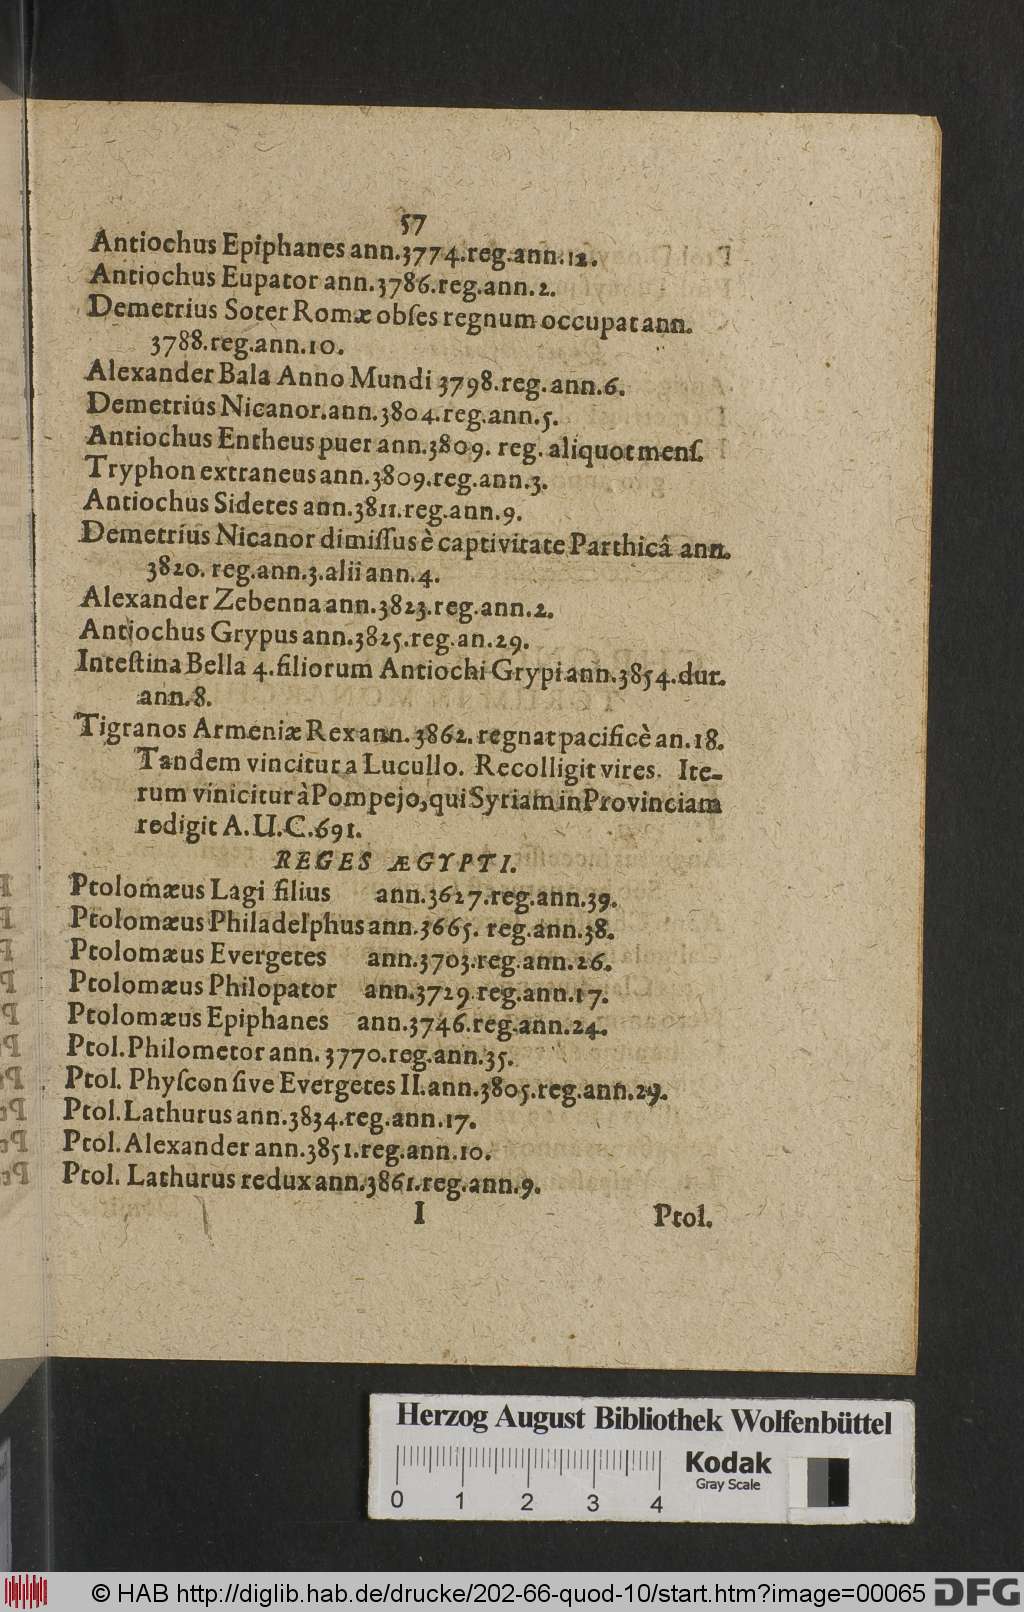 57
Antiochus Epiphanes ann.3774.reg.ann.12.
Antiochus Eupator ann.3786.reg.ann.2.
Demetrius Soter Romæ obſes regnum occupat ann.
3788.reg.ann.10.
Alexander Bala Anno Mundi 3798.reg.ann.6.
Demetrius Nicanor.ann.3804.reg.ann.5.
Antiochus Entheus puer ann.3809. reg. aliquot menſ.
Tryphon extraneus ann.3809.reg.ann.3.
Antiochus Sidetes ann.3811.reg.ann.9.
Demetrius Nicanor dimiſſus è captivitate Parthicâ ann.
3820. reg.ann.3.alii ann.4.
Alexander Zebenna ann.3823.reg.ann.2.
Antiochus Grypus ann.3825.reg.an.29.
Inteſtina Bella 4.filiorum Antiochi Grypi ann.3854.dur.
ann.8.
Tigranos Armeniæ Rex ann. 3862. regnat pacificè an.18.
Tandem vincitur a Lucullo. Recolligit vires. Ite-
rum vinicitur à Pompejo, qui Syriam in Provinciam
redigit A.U.C.691.
REGES ÆGYPTI.
Ptolomæus Lagi filius ann.3627.reg.ann.39.
Ptolomæus Philadelphus ann.3665. reg.ann.38.
Ptolomæus Evergetes ann.3703.reg.ann.26.
Ptolomæus Philopator ann.3729.reg.ann.17.
Ptolomæus Epiphanes ann.3746.reg.ann.24.
Ptol.Philometor ann. 3770.reg.ann.35.
Ptol. Phyſcon ſive Evergetes II.ann.3805.reg.ann.29.
Ptol.Lathurus ann.3834.reg.ann.17.
Ptol.Alexander ann.3851.reg.ann.10.
Ptol. Lathurus redux ann.3861.reg.ann.9.
I Ptol.
Herzog August Bibliothek Wolfenbüttel
Kodak
Gray Scale
0 1 2 3 4
© HAB http://diglib.hab.de/drucke/202-66-quod-10/start.htm?image=00065
DFG